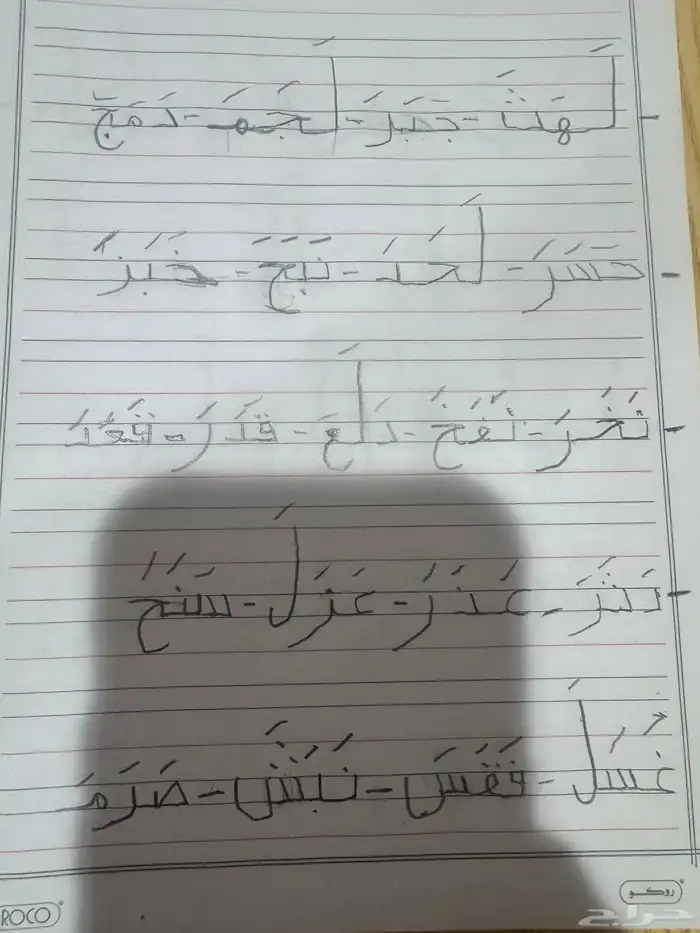 لَهَثَ - جَبَرَ - لَجَمَ - دَمَجَ
حَسَرَ - لَحَدَ - نَبَحَ - خَبَزَ
نَخَرَ - نَفَحَ - دَلَعَ - قَدَرَ - قَعَدَ
نَثَرَ - غَدَرَ - عَزَلَ - سَنَحَ
غَسَلَ - فَقَسَ - نَبَشَ - صَرَمَ
روكو
ROCO
حراج